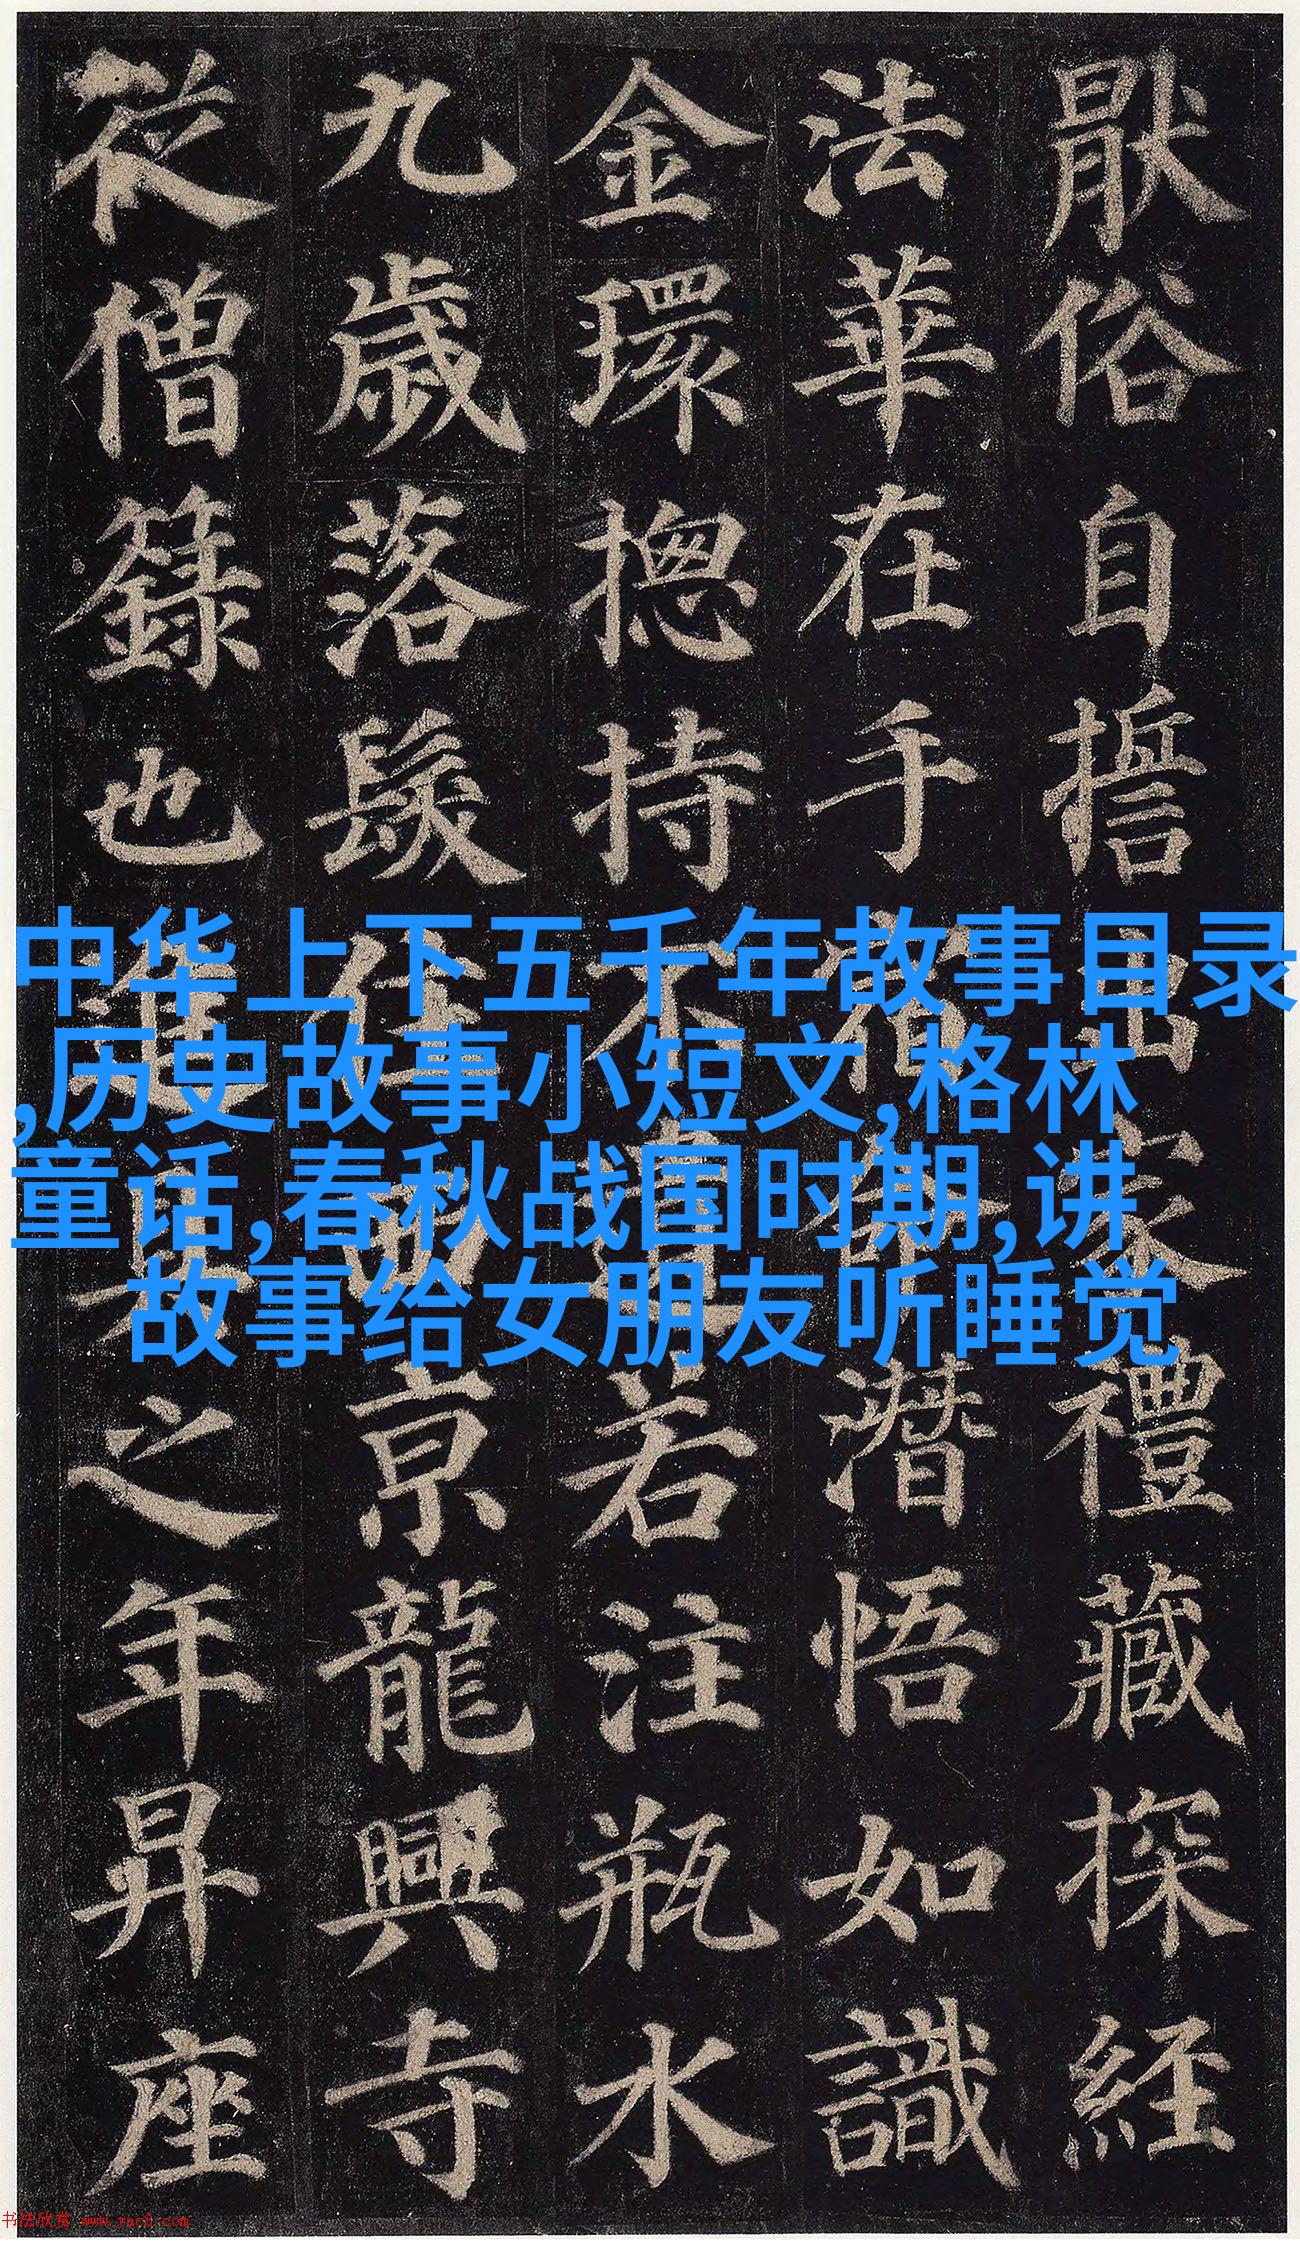 猒俗自誓出家禮藏探經
法華在手宿命潛悟如識
金環揔持不遺若注瓶水
九歲落髮住西京龍興寺
從僧籙也進具之年昇座
中华上下五千年故事目录
,历史故事小短文,格林
童话,春秋战国时期,讲
故事给女朋友听睡觉
书法欣赏 www.yac8.com